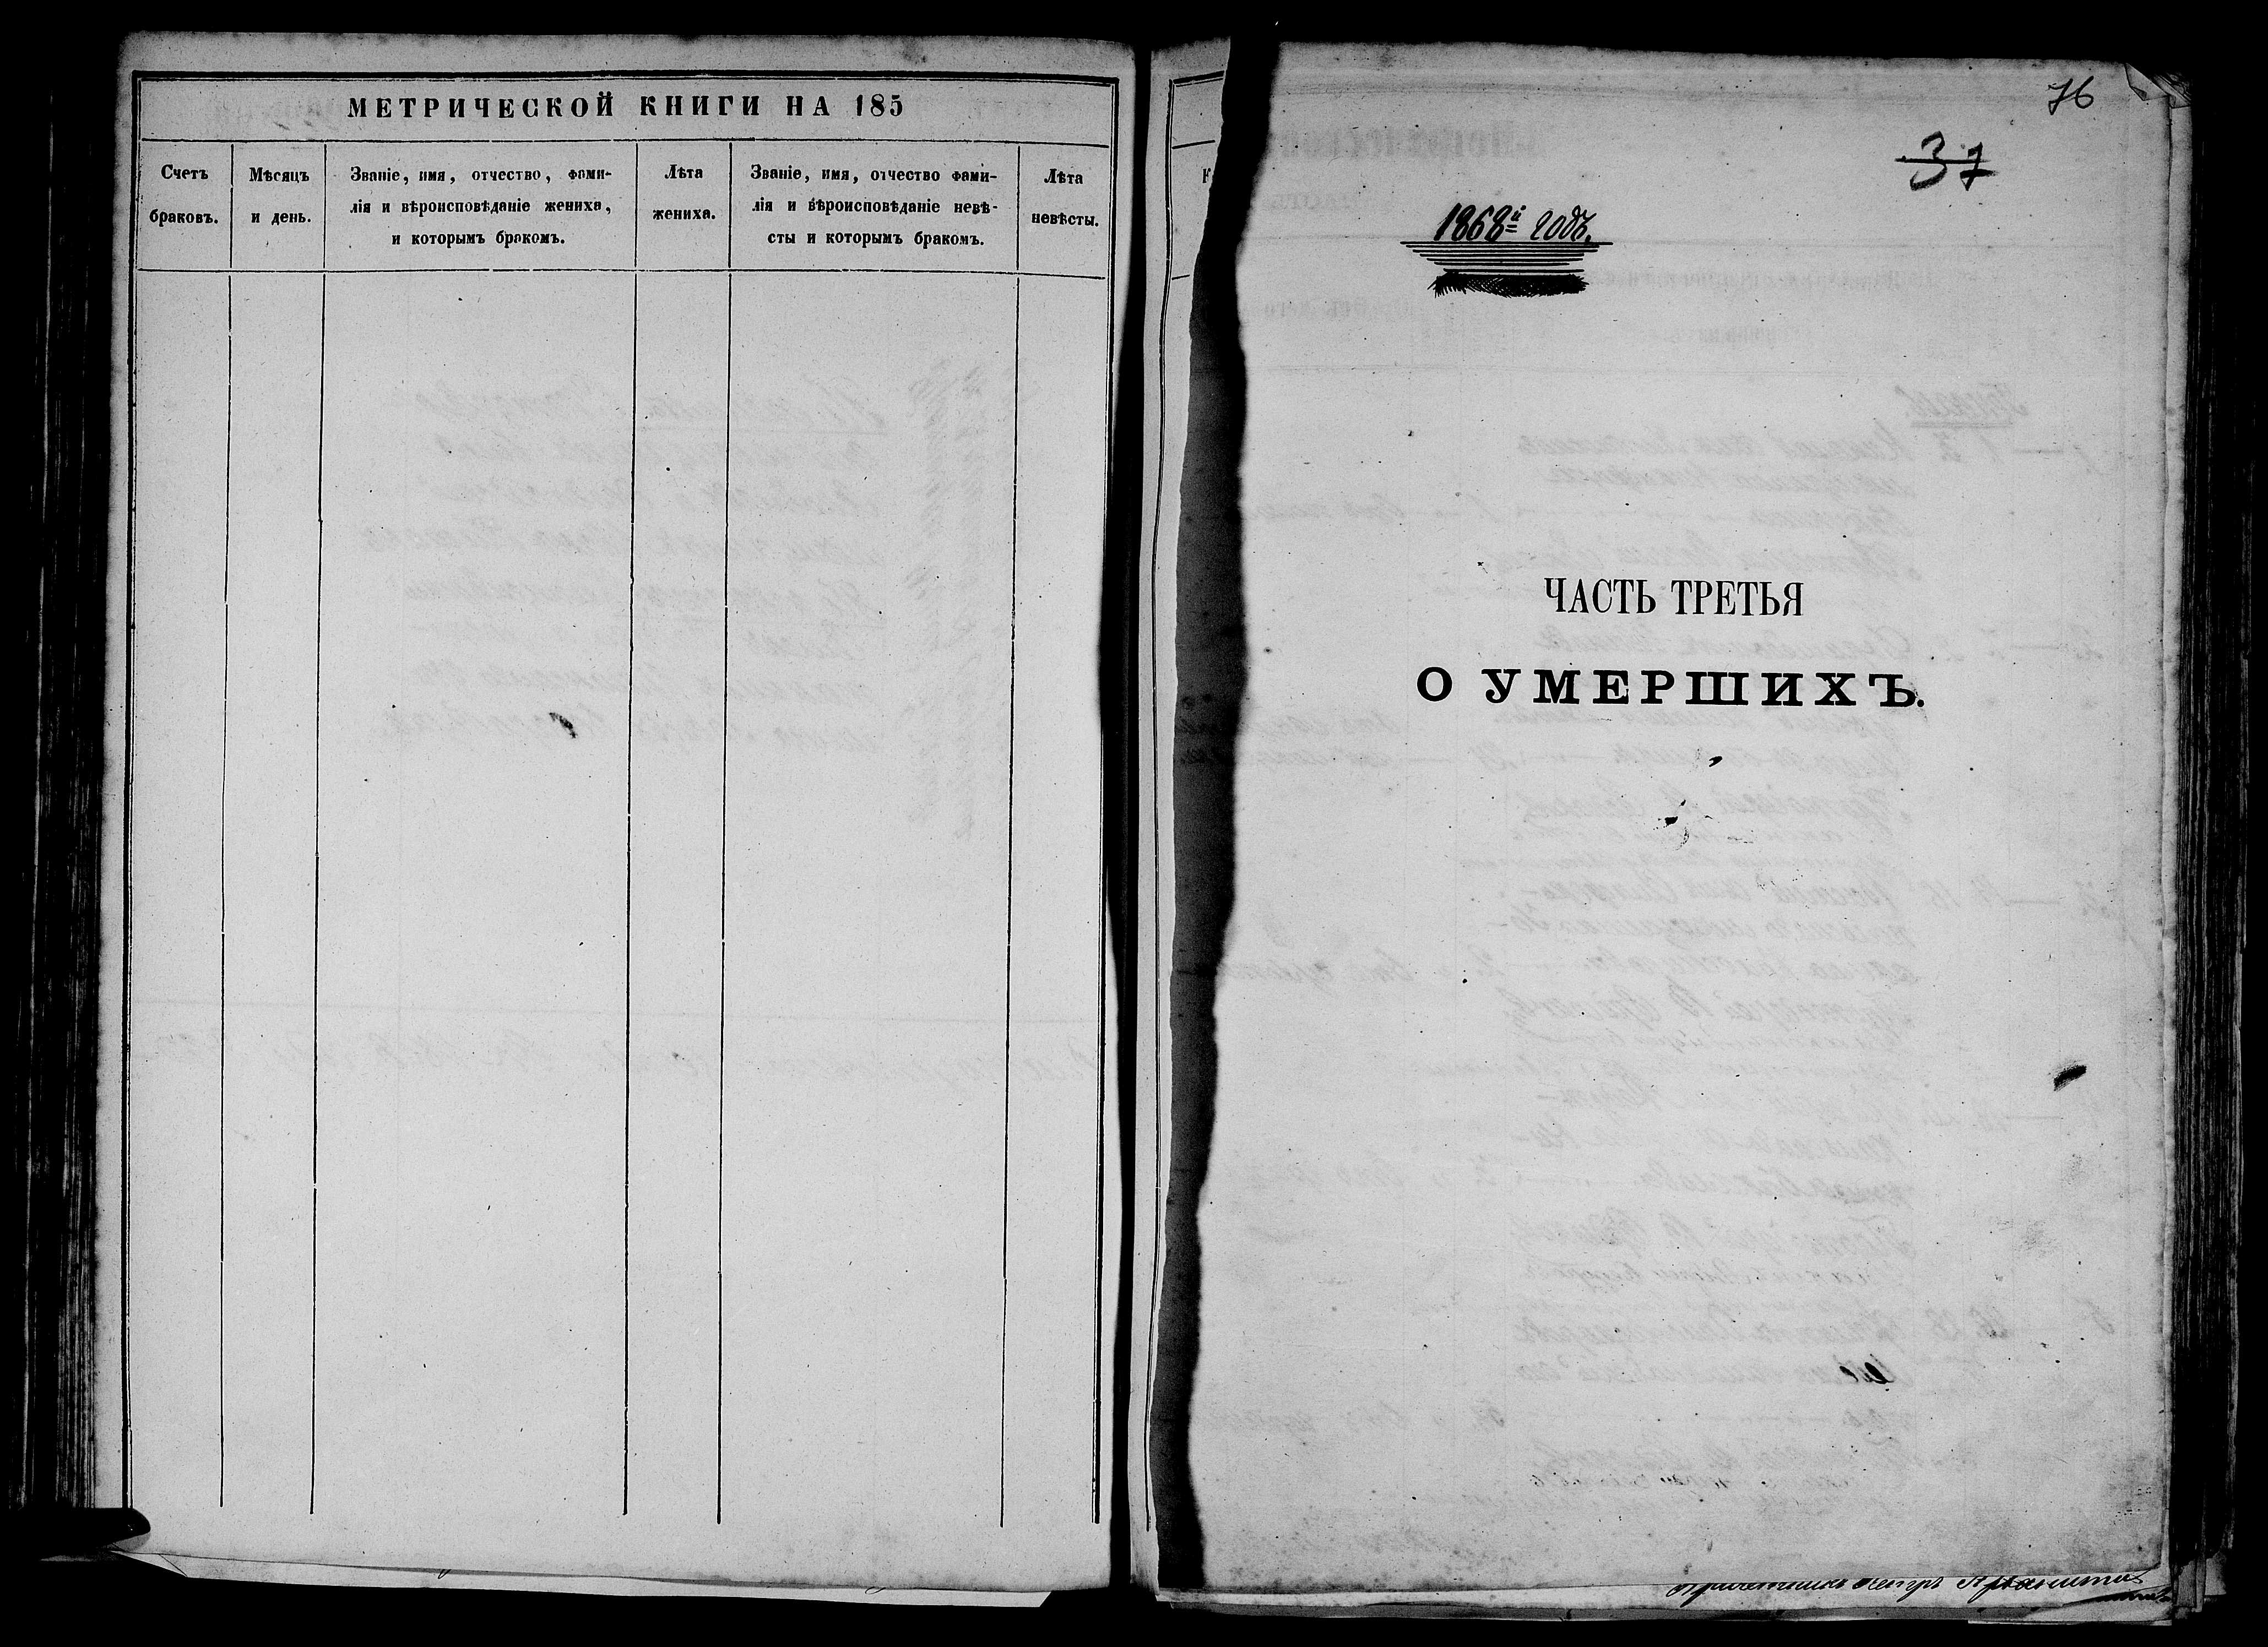 МЕТРИЧЕСКОЙ КНИГИ НА 185
Счетъ
браковъ.
Мѣсяцъ
и день.
Званіе, имя, отчество, фами-
лія и вѣроисповѣданіе жениха,
и которымъ бракомъ.
Лѣта
жениха.
Званіе, имя, отчество фами-
лія и вѣроисповѣданіе невѣ-
сты и которымъ бракомъ.
Лѣта
невѣсты.
76
37
1868й годъ.
ЧАСТЬ ТРЕТЬЯ
О УМЕРШИХЪ.
Петръ